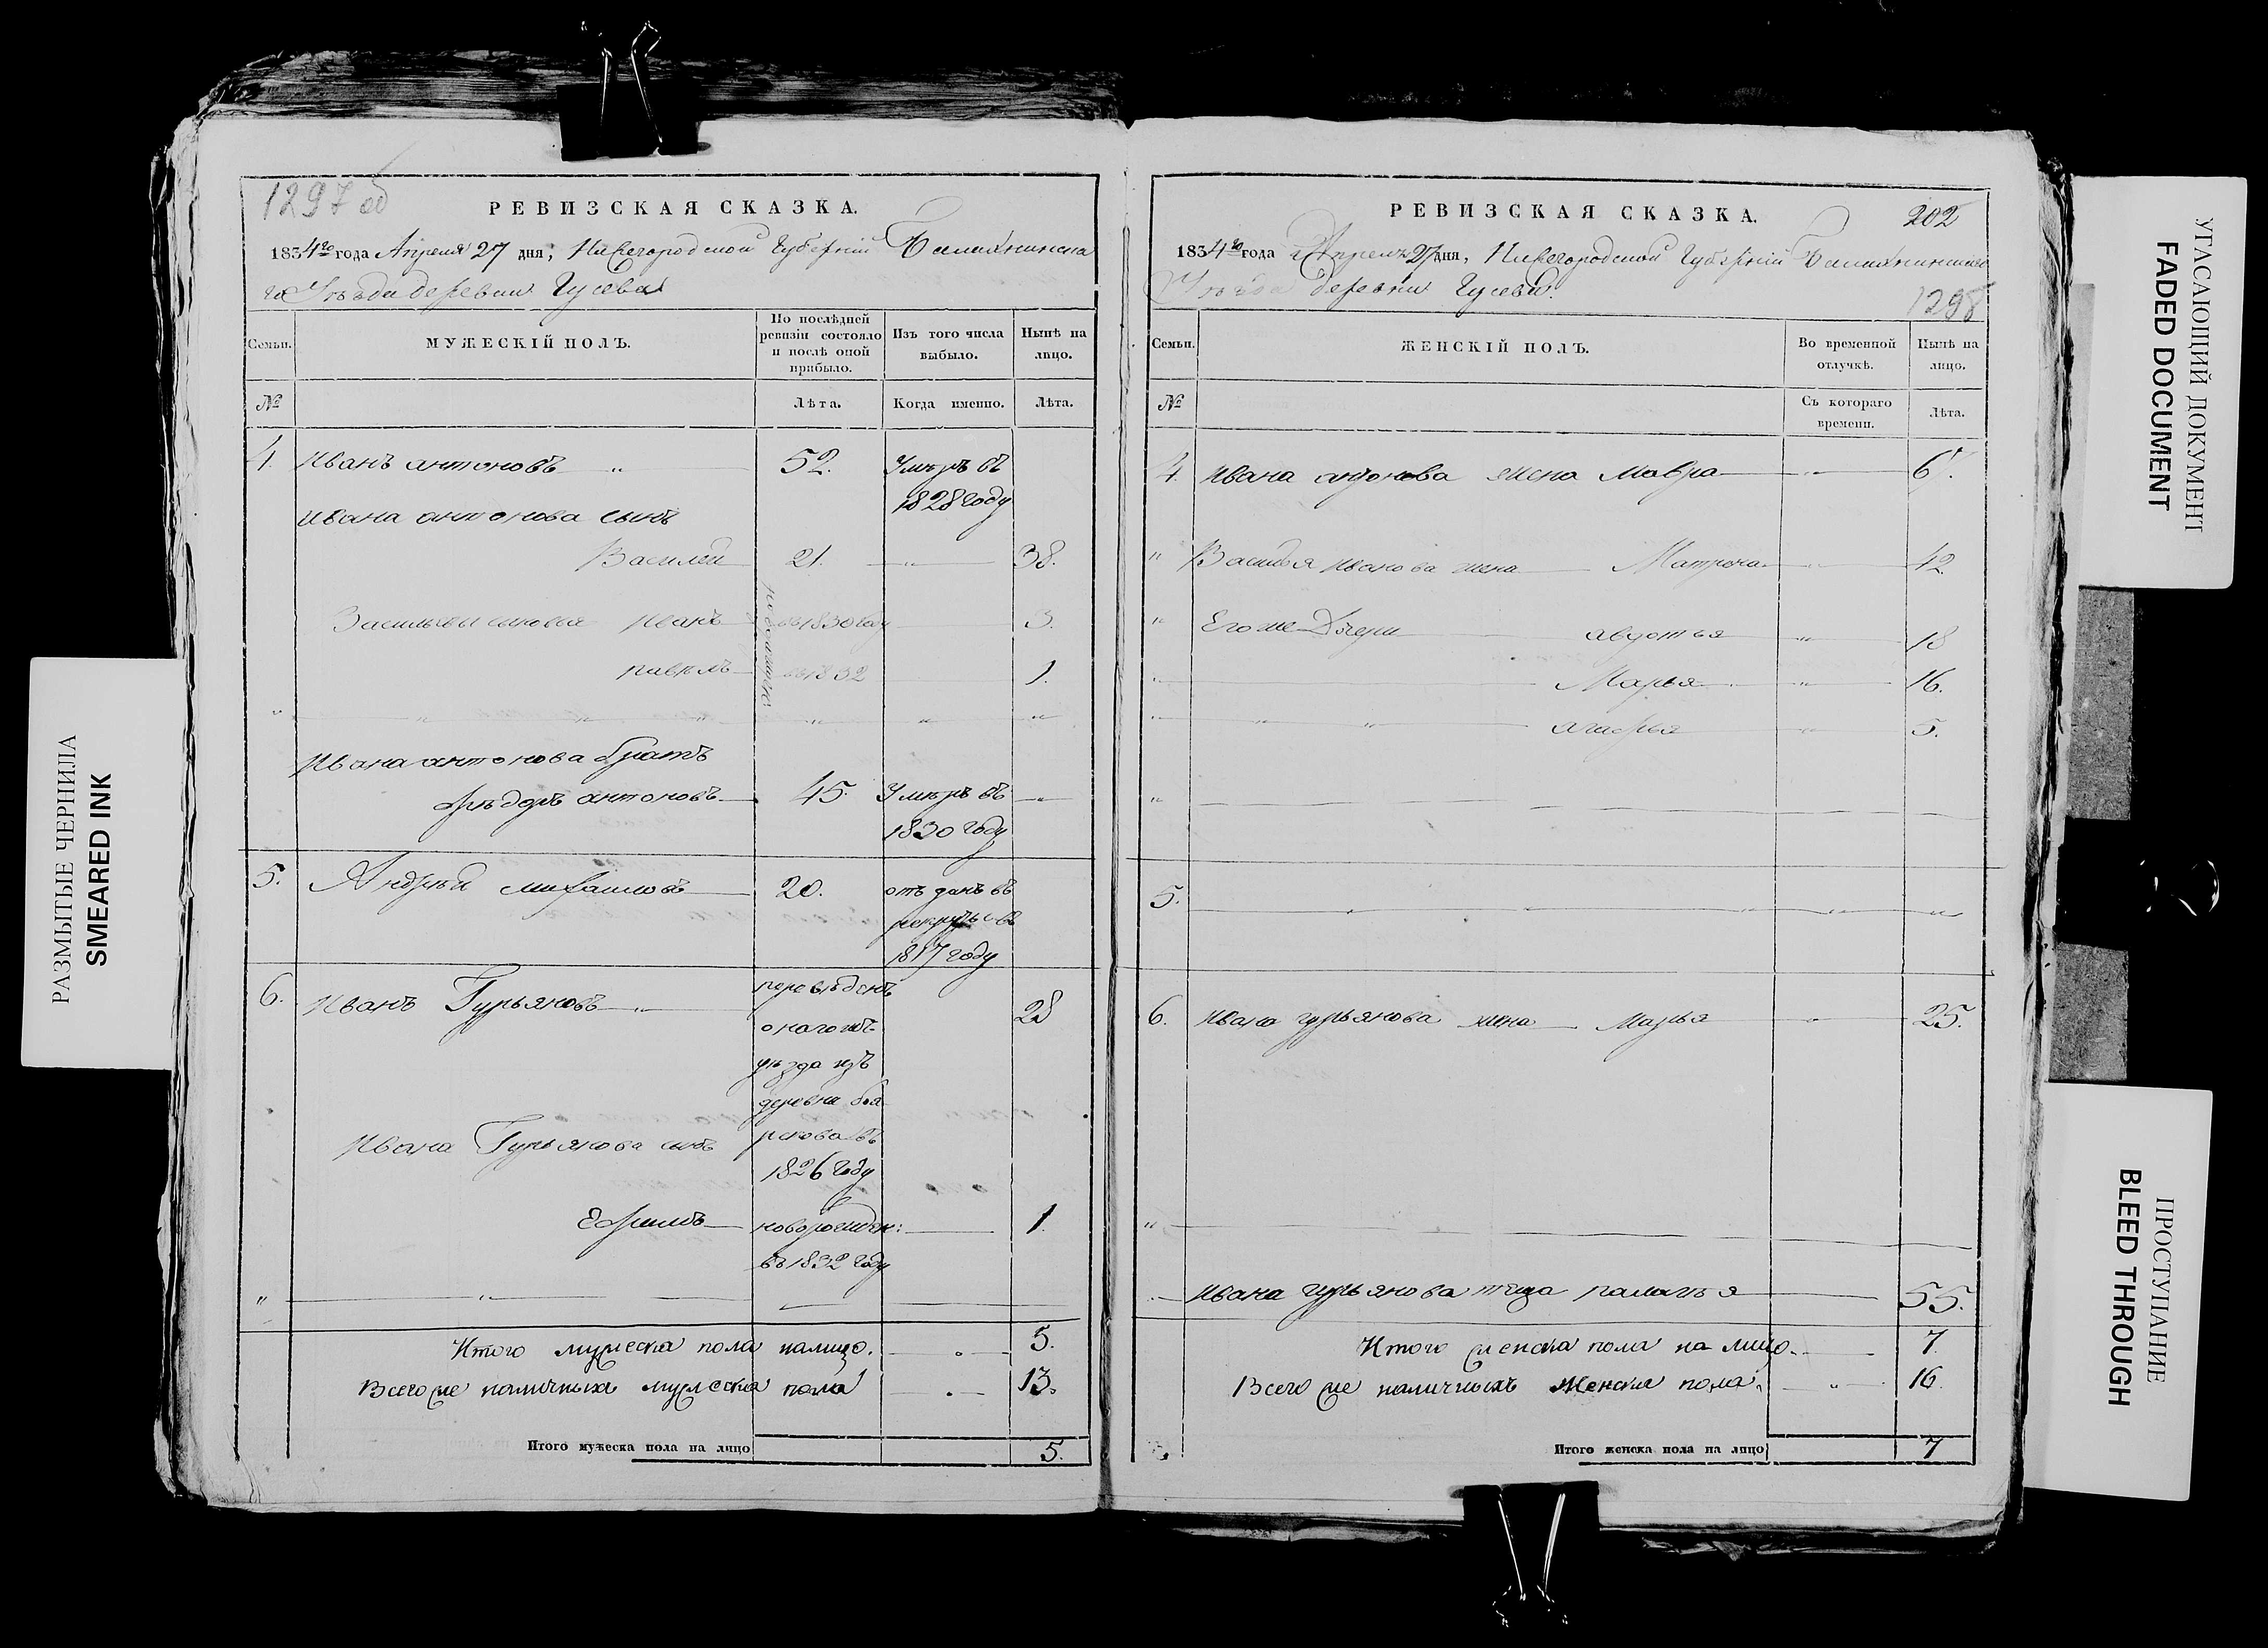 1297 об
РЕВИЗСКАЯ СКАЗКА.
1834го года Апреля 27 дня, Нижегородской Губернии Балахнинска
го Уезда деревни Гусева
Семьи.
МУЖЕСКІЙ ПОЛЪ.
По послѣдней ревизіи состояло и послѣ оной прибыло.
Изъ того числа выбыло.
Нынѣ на лицо.
№
Лѣта.
Когда именно.
Лѣта.
4. Иванъ антоновъ " 52. Умѣръ въ
1828 году
Ивана антонова сынъ
Василей 21. " 38.
Васильевы сыновья Иванъ въ 1830 году 3.
павелъ въ 1832 1.
Ивана антонова братъ
Ѳедоръ антоновъ 45. Умѣръ въ "
1830 году
5. Андрей михаиловъ 20. отъ данъ въ
рекруты въ
1817 году
6. Иванъ Гурьяновъ " переведенъ 28
онаго жъ
уезда изъ
деревни
1826 году
Ивана Гурьянова сынъ
Ефимъ новорожден: 1.
въ 1832 году
Итого мужеска пола налицо. 5.
Всего же наличныхъ мужеска пола 13.
Итого мужеска пола на лицо 5.
РЕВИЗСКАЯ СКАЗКА.
202
1834го года Апреля 27 дня, Нижегородской Губернии Балахнинскаго
Уезда деревни Гусева.
1298
Семьи.
ЖЕНСКІЙ ПОЛЪ.
Во временной отлучкѣ.
Нынѣ на лицо.
№
Съ котораго времени.
Лѣта.
4. Ивана антонова жена мавра " 67.
" Василья Иванова жена Матрена " 42.
" Его же Дочери авдотья " 18
" Марья " 16.
" " " " 5.
"
5. " "
6. Ивана гурьянова жена Марья " 25.
"
Ивана гурьянова 55.
Итого женска пола на лицо. 7.
Всего же наличныхъ Женска пола. " 16.
Итого женска пола на лицо 7
РАЗМЫТЫЕ ЧЕРНИЛА
SMEARED INK
УГАСАЮЩИЙ ДОКУМЕНТ
FADED DOCUMENT
ПРОСТУПАНИЕ
BLEED THROUGH